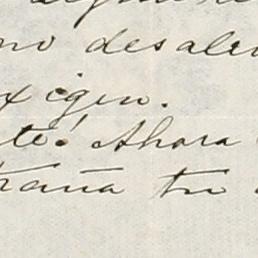 no desale
exigen.
te! Ahora
traña tu